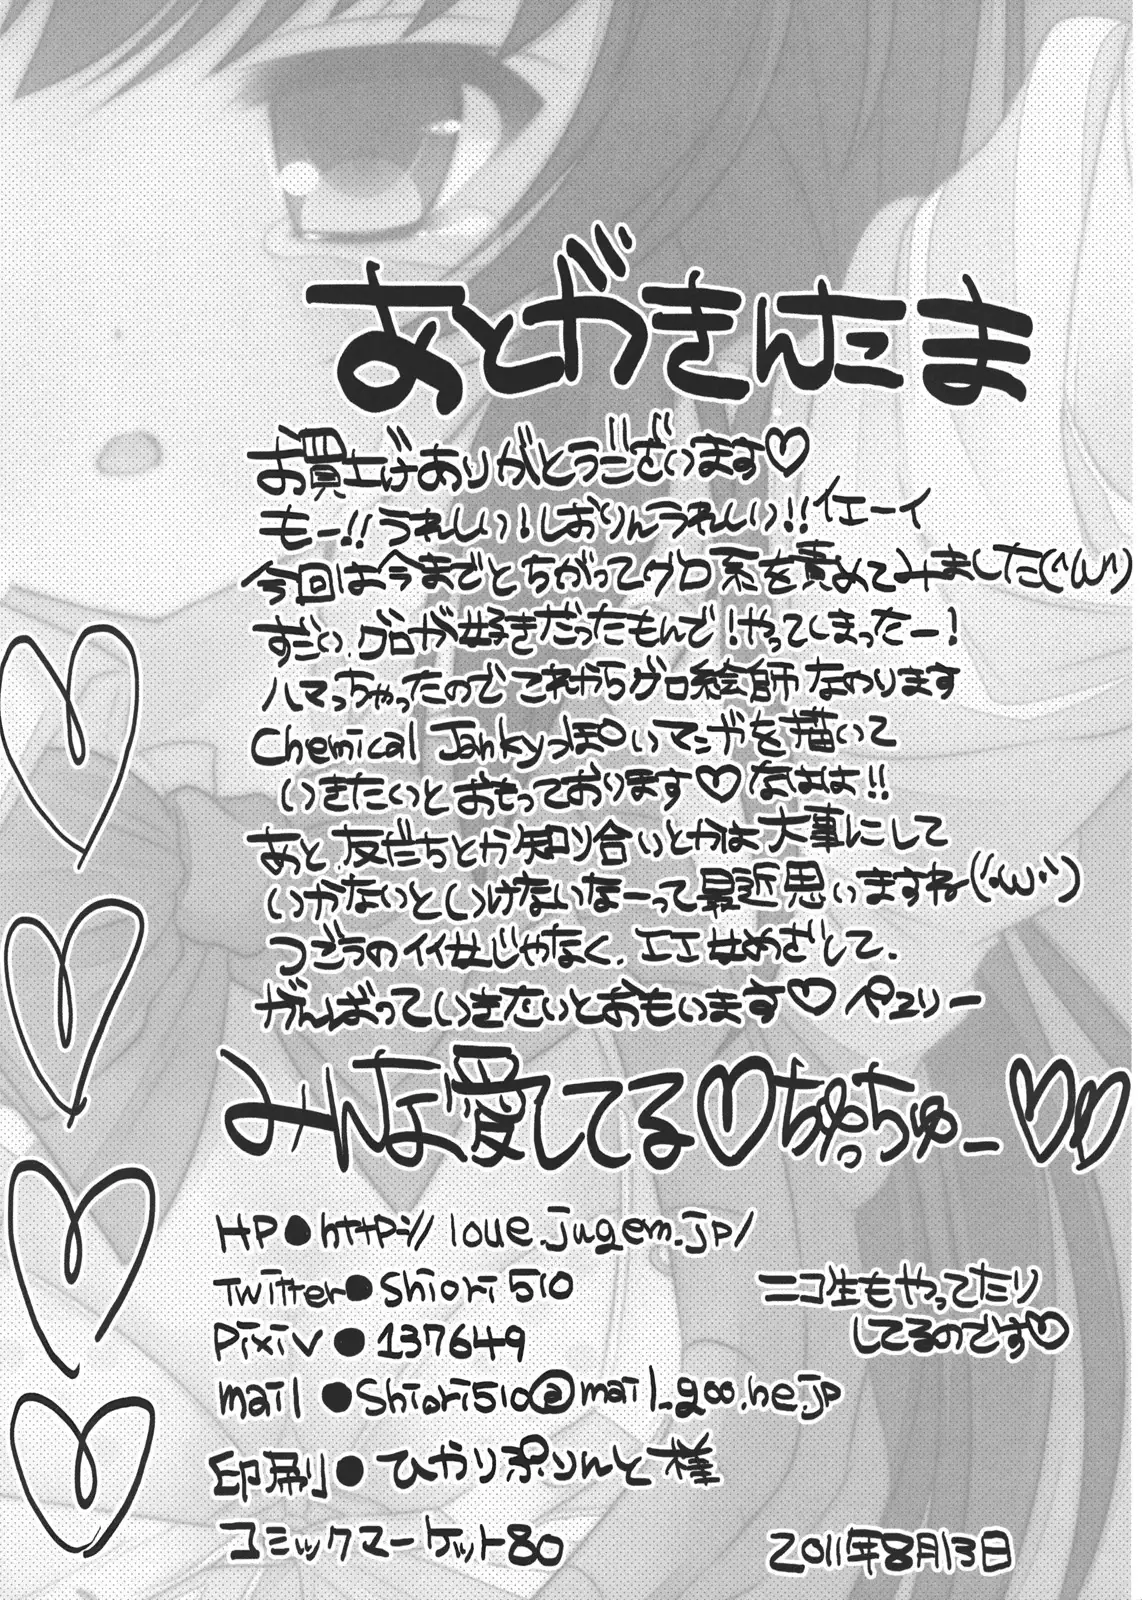 あとがきんたま
お買上げありがとうございます♡
もー!!うれしい!しおりんうれしい!!イエーイ
今回は今までとちがってグロ系を責めてみました(´・ω・`)
すごい、グロが好きだったもんで!やってしまったー!
ハマっちゃったのでこれからグロ絵師なのります
Chemical Jankyっぽいマンガを描いて
いきたいとおもっております♡なはは!!
あと、友だちとか知り合いとかは大事にして
いかないといけないなーって最近思いますね(´・ω・`)
つごうのイイ女じゃなく、エエ女めざして、
がんばっていきたいとおもいます♡ペロリー
みんな愛してる♡ちゅっちゅー♡♡
HP●http://loue.jugem.jp/
Twitter●Shiori510
ニコ生もやってたり
してるのです♡
Pixiv●137649
mail●Shiori510@mail.goo.ne.jp
印刷●ひかりぷりんと様
コミックマーケット80
2011年8月13日